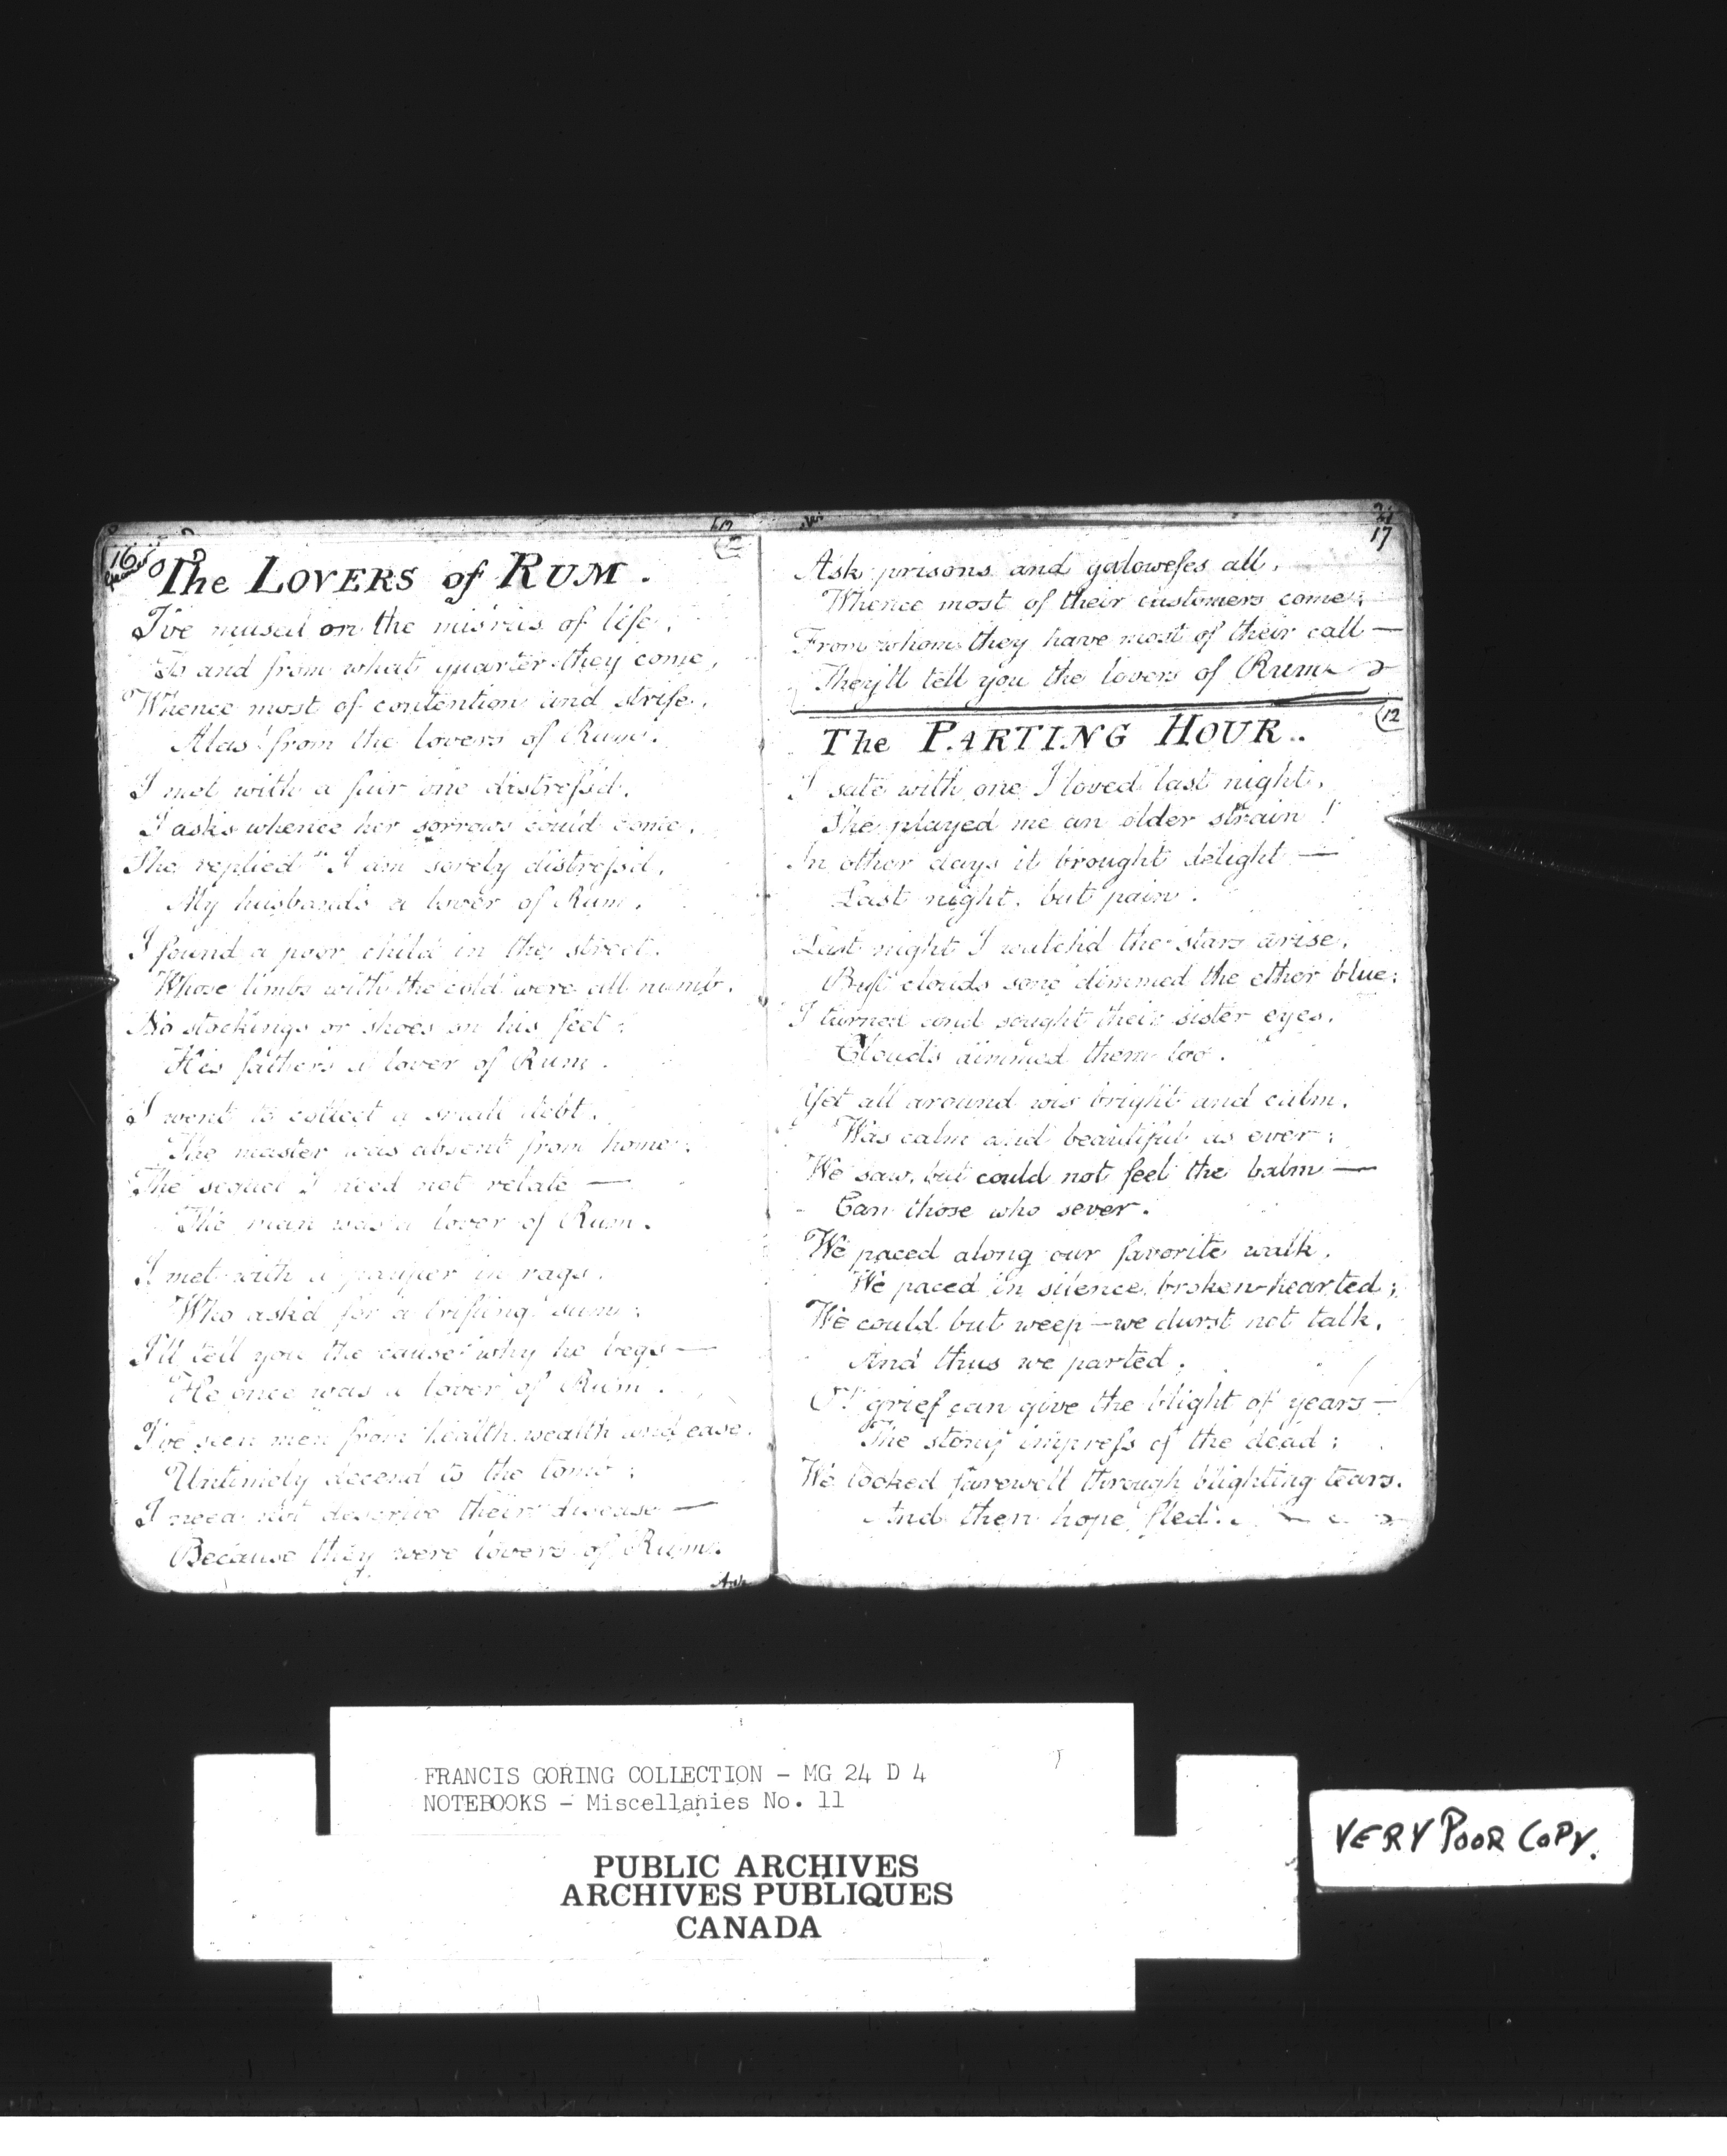 16
The LOVERS of RUM.
I've mused on the misries of life,
To and from what quarter they come,
Whence most of contention and strife,
Alas! from the lovers of Rum.
I met with a fair one distreſsd,
I asks whence her sorrows could come,
She replied "I am sorely distreſsd,
My husband's a lover of Rum.
I found a poor child in the street.
Whose limbs with the cold were all numb.
No stockings or shoes on his feet:
His father's a lover of Rum.
I went to collect a small debt.
The master was absent from home:
The sequel I need not relate —
The man was a lover of Rum.
I met with a pauper in rags.
Who ask'd for a trifling sum:
I'll tell you the cause why he begs —
He once was a lover of Rum.
I've seen men from health wealth and ease.
Untimely decend to the tomb;
I need not descrive their disease —
Because they were lovers of Rum.
Ask
17
Ask prisons and galoweſes all,
Whence most of their customers come;
From whom they have most of their call —
They'll tell you the lovers of Rum
12
The PARTING HOUR..
I sate with one I loved last night,
She played me an older strain!
In other days it brought delight —
Last night, but pain.
Last night I watch'd the stars arise,
But clouds sone dimmed the ether blue:
I turned and sought their sister eyes.
Clouds dimmed them too.
Yet all around was bright and calm,
Was calm and beautiful as ever;
We saw, but could not feel the balm —
Can those who sever.
We paced along our favorite walk,
We paced in silence broken-hearted;
We could but weep — we durst not talk,
And thus we parted.
grief can give the blight of years —
The stony impreſs of the dead;
We looked farewell through blighting tears.
And then hope fled.
FRANCIS GORING COLLECTION - MG 24 D 4
NOTEBOOKS - Miscellanies No. 11
PUBLIC ARCHIVES
ARCHIVES PUBLIQUES
CANADA
VERY POOR COPY.